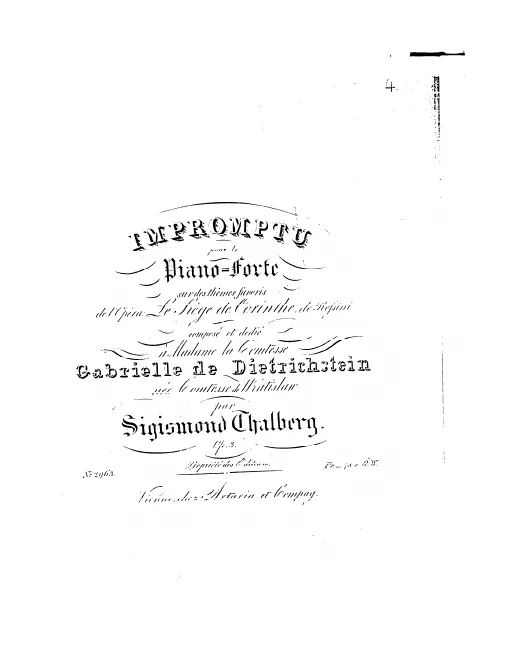 4.
IMPROMPTU
pour le
Piano=Forte
sur des thèmes favoris
de l'Opéra: Le Siège de Corinthe, de Rossini
composé et dedié
à Madame la Comtesse
Gabrielle de Dietrichstein
née Comtesse de Wratislaw
par
Sigismond Thalberg.
Op. 3.
Propriété des Editeurs.
No. 2963.
Vienne, chez Artaria et Compag.